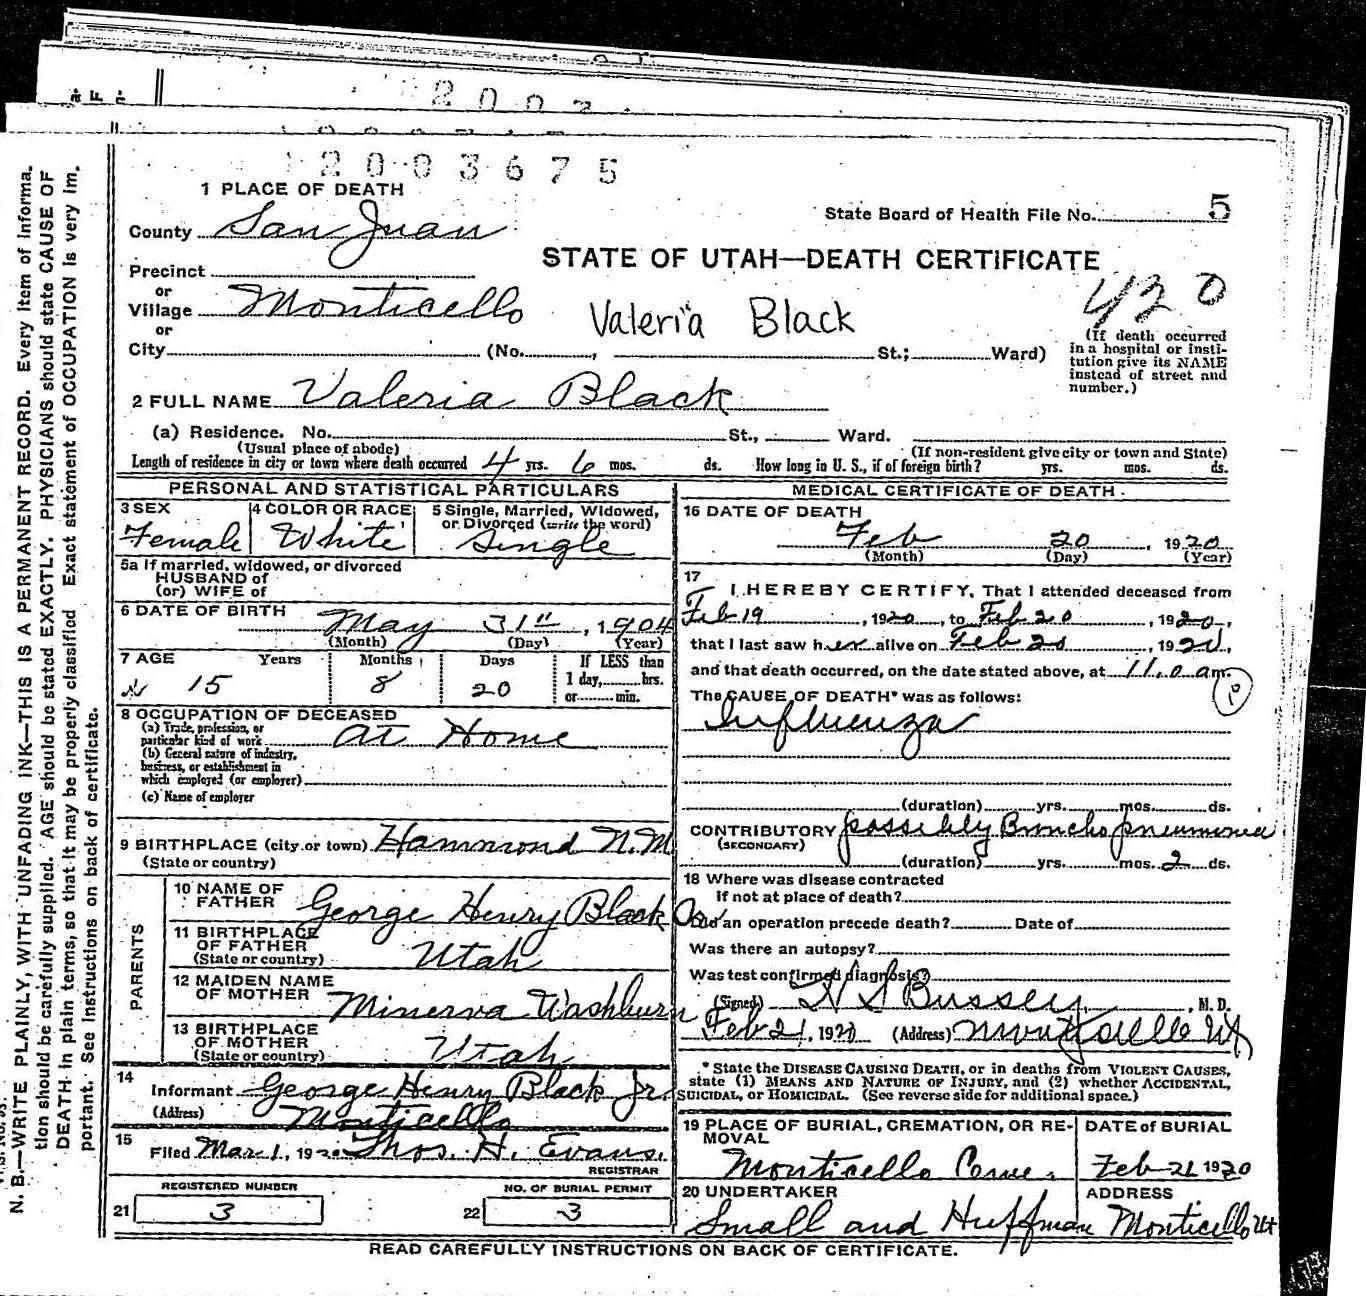 2003675
1 PLACE OF DEATH
State Board of Health File No. 5
County San Juan
STATE OF UTAH—DEATH CERTIFICATE
Precinct
420
or
Village Monticello
Valeria Black
or
City (No. , St.; Ward)
(If death occurred
in a hospital or insti-
tution give its NAME
instead of street and
number.)
2 FULL NAME Valeria Black
(a) Residence. No. St., Ward.
(Usual place of abode) (If non-resident give city or town and State)
Length of residence in city or town where death occurred 4 yrs. 6 mos. ds. How long in U. S., if of foreign birth? yrs. mos. ds.
PERSONAL AND STATISTICAL PARTICULARS
3 SEX 4 COLOR OR RACE 5 Single, Married, Widowed,
or Divorced (write the word)
Female White Single
5a If married, widowed, or divorced
HUSBAND of
(or) WIFE of
6 DATE OF BIRTH
May 31", 1904
(Month) (Day) (Year)
7 AGE Years Months Days If LESS than
1 day, hrs.
or min.
15 8 20
8 OCCUPATION OF DECEASED
(a) Trade, profession, or
particular kind of work At Home
(b) General nature of industry,
business, or establishment in
which employed (or employer)
(c) Name of employer
9 BIRTHPLACE (city or town) Hammond N.M
(State or country)
PARENTS
10 NAME OF
FATHER George Henry Black
11 BIRTHPLACE
OF FATHER
(State or country) Utah
12 MAIDEN NAME
OF MOTHER Minerva Washburn
13 BIRTHPLACE
OF MOTHER
(State or country) Utah
14
Informant George Henry Black Jr.
(Address) Monticello
15
Filed Mar 1, 1920 Thos. H. Evans.
REGISTRAR
REGISTERED NUMBER
21 3
NO. OF BURIAL PERMIT
22 3
MEDICAL CERTIFICATE OF DEATH
16 DATE OF DEATH
Feb 20, 1920
(Month) (Day) (Year)
17
I HEREBY CERTIFY, That I attended deceased from
Feb 19, 1920, to Feb 20, 1920,
that I last saw her alive on Feb 20, 1920,
and that death occurred, on the date stated above, at 11.0 am.
The CAUSE OF DEATH* was as follows:
Influenza
(duration) yrs. mos. ds.
CONTRIBUTORY possibly Broncho pneumonia
(SECONDARY)
(duration) yrs. mos. 2 ds.
18 Where was disease contracted
if not at place of death?
Did an operation precede death? Date of
Was there an autopsy?
Was test confirmed diagnosis?
(Signed) W S Bussey, M. D.
Feb 21, 1920 (Address) Monticello Ut
* State the DISEASE CAUSING DEATH, or in deaths from VIOLENT CAUSES,
state (1) MEANS AND NATURE OF INJURY, and (2) whether ACCIDENTAL,
SUICIDAL, or HOMICIDAL. (See reverse side for additional space.)
19 PLACE OF BURIAL, CREMATION, OR RE-
MOVAL
DATE of BURIAL
Monticello Ceme. Feb 21 1920
20 UNDERTAKER ADDRESS
Small and Huffman Monticello Ut
READ CAREFULLY INSTRUCTIONS ON BACK OF CERTIFICATE.
N. B.—WRITE PLAINLY, WITH UNFADING INK—THIS IS A PERMANENT RECORD. Every item of informa-
tion should be carefully supplied. AGE should be stated EXACTLY. PHYSICIANS should state CAUSE OF
DEATH in plain terms, so that it may be properly classified Exact statement of OCCUPATION is very im-
portant. See instructions on back of certificate.